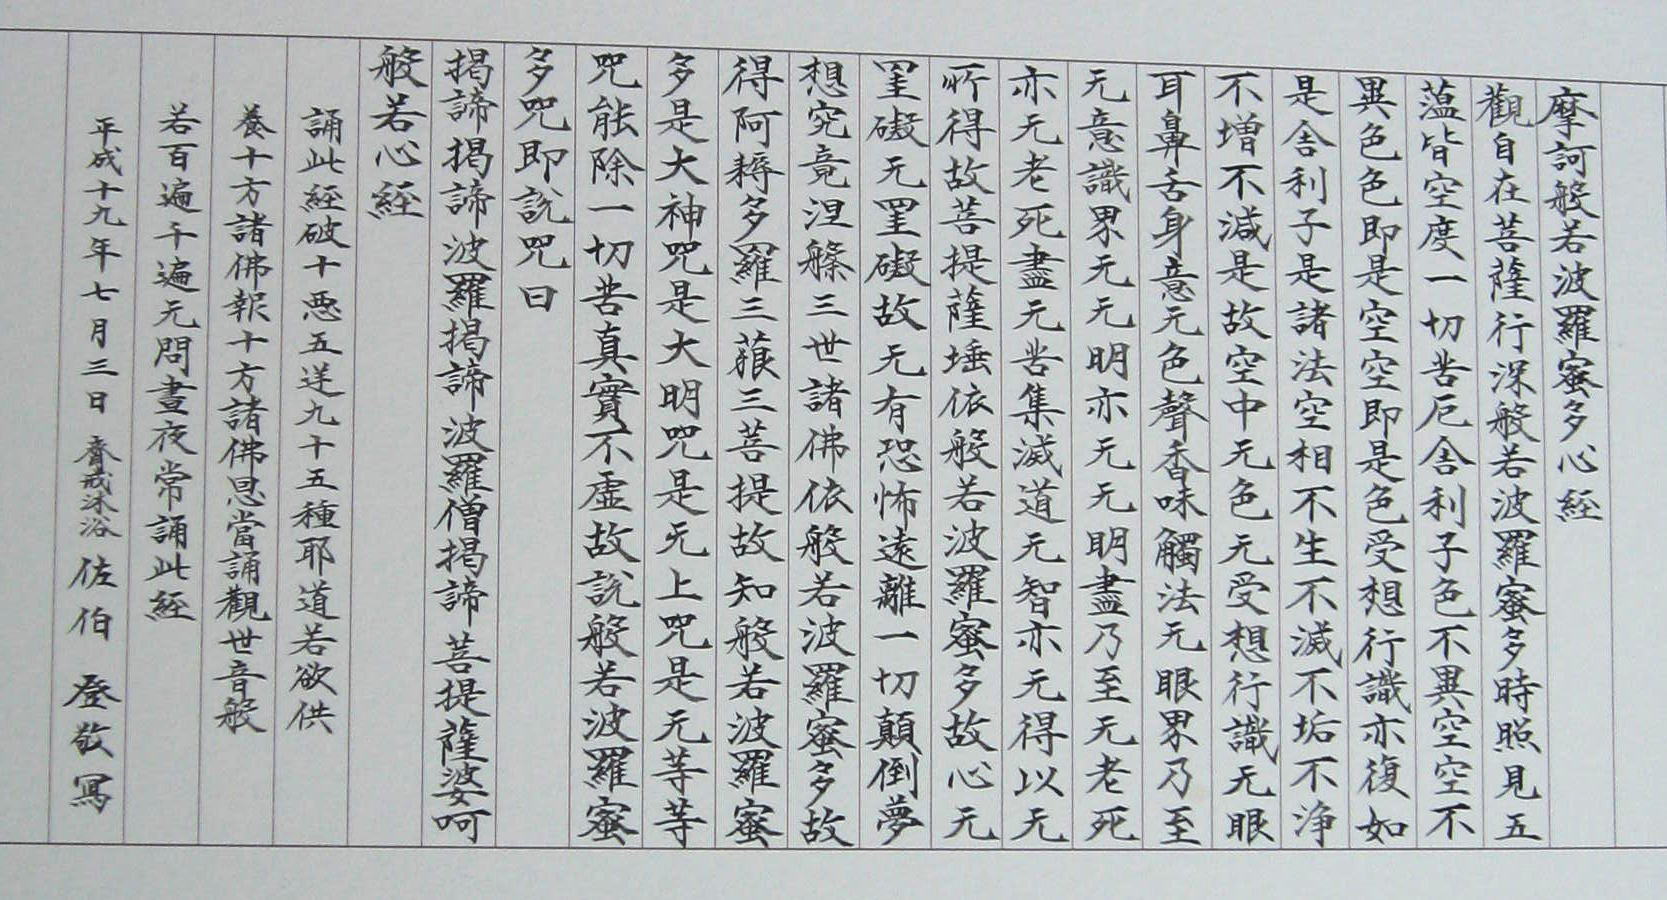 摩訶般若波羅蜜多心経
觀自在菩薩行深般若波羅蜜多時照見五
薀皆空度一切苦厄舎利子色不異空空不
異色色即是空空即是色受想行識亦復如
是舎利子是諸法空相不生不滅不垢不浄
不增不減是故空中无色无受想行識无眼
耳鼻舌身意无色聲香味觸法无眼界乃至
无意識界无无明亦无无明盡乃至无老死
亦无老死盡无苦集滅道无智亦无得以无
所得故菩提薩埵依般若波羅蜜多故心无
罣礙无罣礙故无有恐怖遠離一切顛倒夢
想究竟涅槃三世諸佛依般若波羅蜜多故
得阿耨多羅三藐三菩提故知般若波羅蜜
多是大神咒是大明咒是无上咒是无等等
咒能除一切苦真實不虛故說般若波羅蜜
多咒即説咒曰
揭諦揭諦波羅揭諦波羅僧揭諦菩提薩婆呵
般若心経
誦此経破十悪五逆九十五種耶道若欲供
養十方諸佛報十方諸佛恩當誦觀世音般
若百遍千遍无問晝夜常誦此経
平成十九年七月三日 齋戒沐浴 佐伯 登敬寫